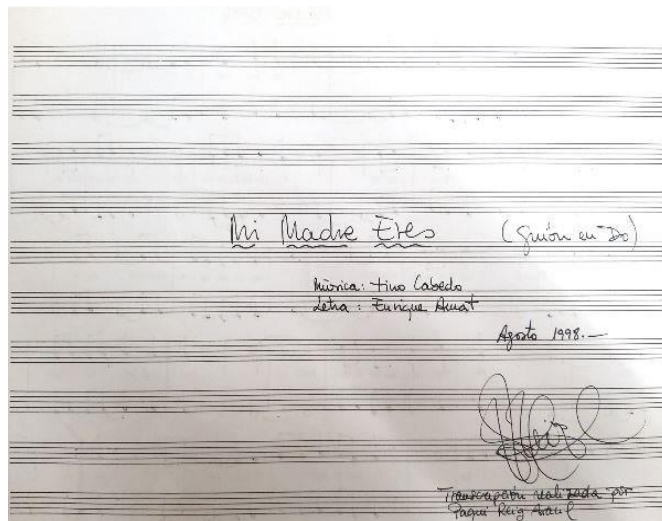 Mi Madre Eres (Guión en Do)
Música: Tino Cabedo
Letra: Enrique Amat
Agosto 1998.—
Transcripción realizada por
Paqui Reig